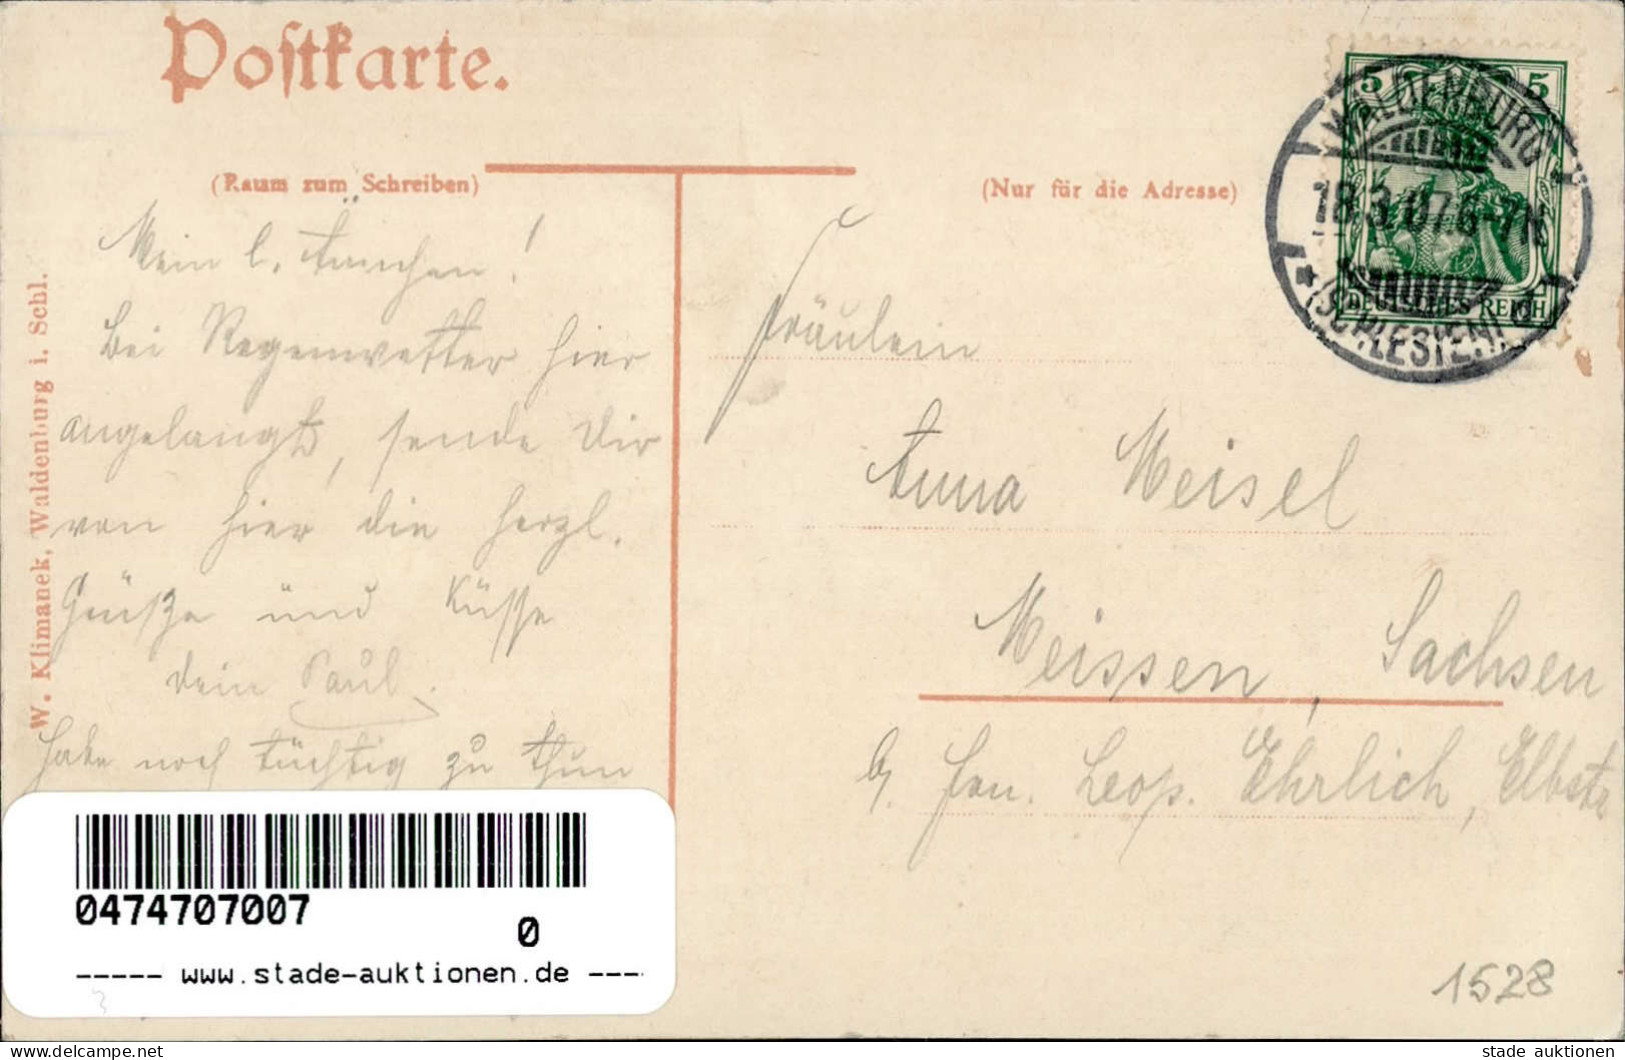 Postkarte.
(Raum zum Schreiben)
(Nur für die Adresse)
W. Klimanek, Waldenburg i. Schl.
5 5
DEUTSCHES REICH
WALDENBURG
18.3.07.6-7N
*(SCHLESIEN)
Mein l. Ännchen!
Bei Regenwetter hier
angelangt, sende Dir
von hier die herzl.
Grüße und Küsse
dein Paul.
habe noch tüchtig zu thun
Fräulein
Anna Meisel
Meissen, Sachsen
b/ Hrn. Leop. Ehrlich, Elbstr
1528
0474707007
0
----- www.stade-auktionen.de ---
delcampe.net
stade auktionen